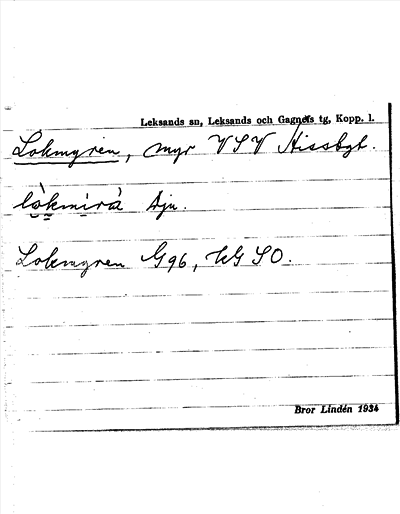 Leksands sn, Leksands och Gagnefs tg, Kopp. l.
Lokmyren, myr VSV Hissbgt.
lòkmirà Dju.
Lokmyren G96, HG SO.
Bror Lindén 1934